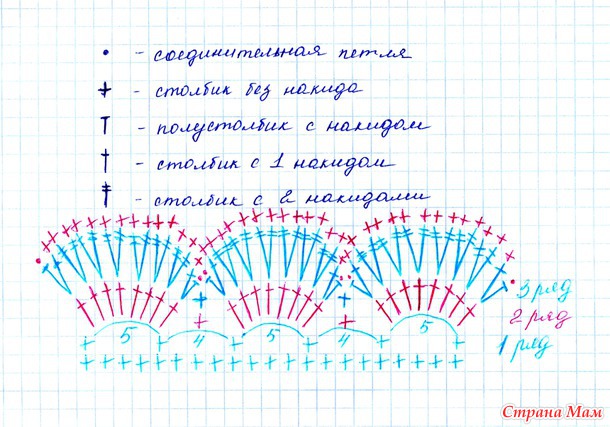 • - соединительная петля
+ - столбик без накида
т - полустолбик с накидом
† - столбик с 1 накидом
‡ - столбик с 2 накидами
3 ряд
2 ряд
1 ряд
5 4 5 4 5
Страна Мам